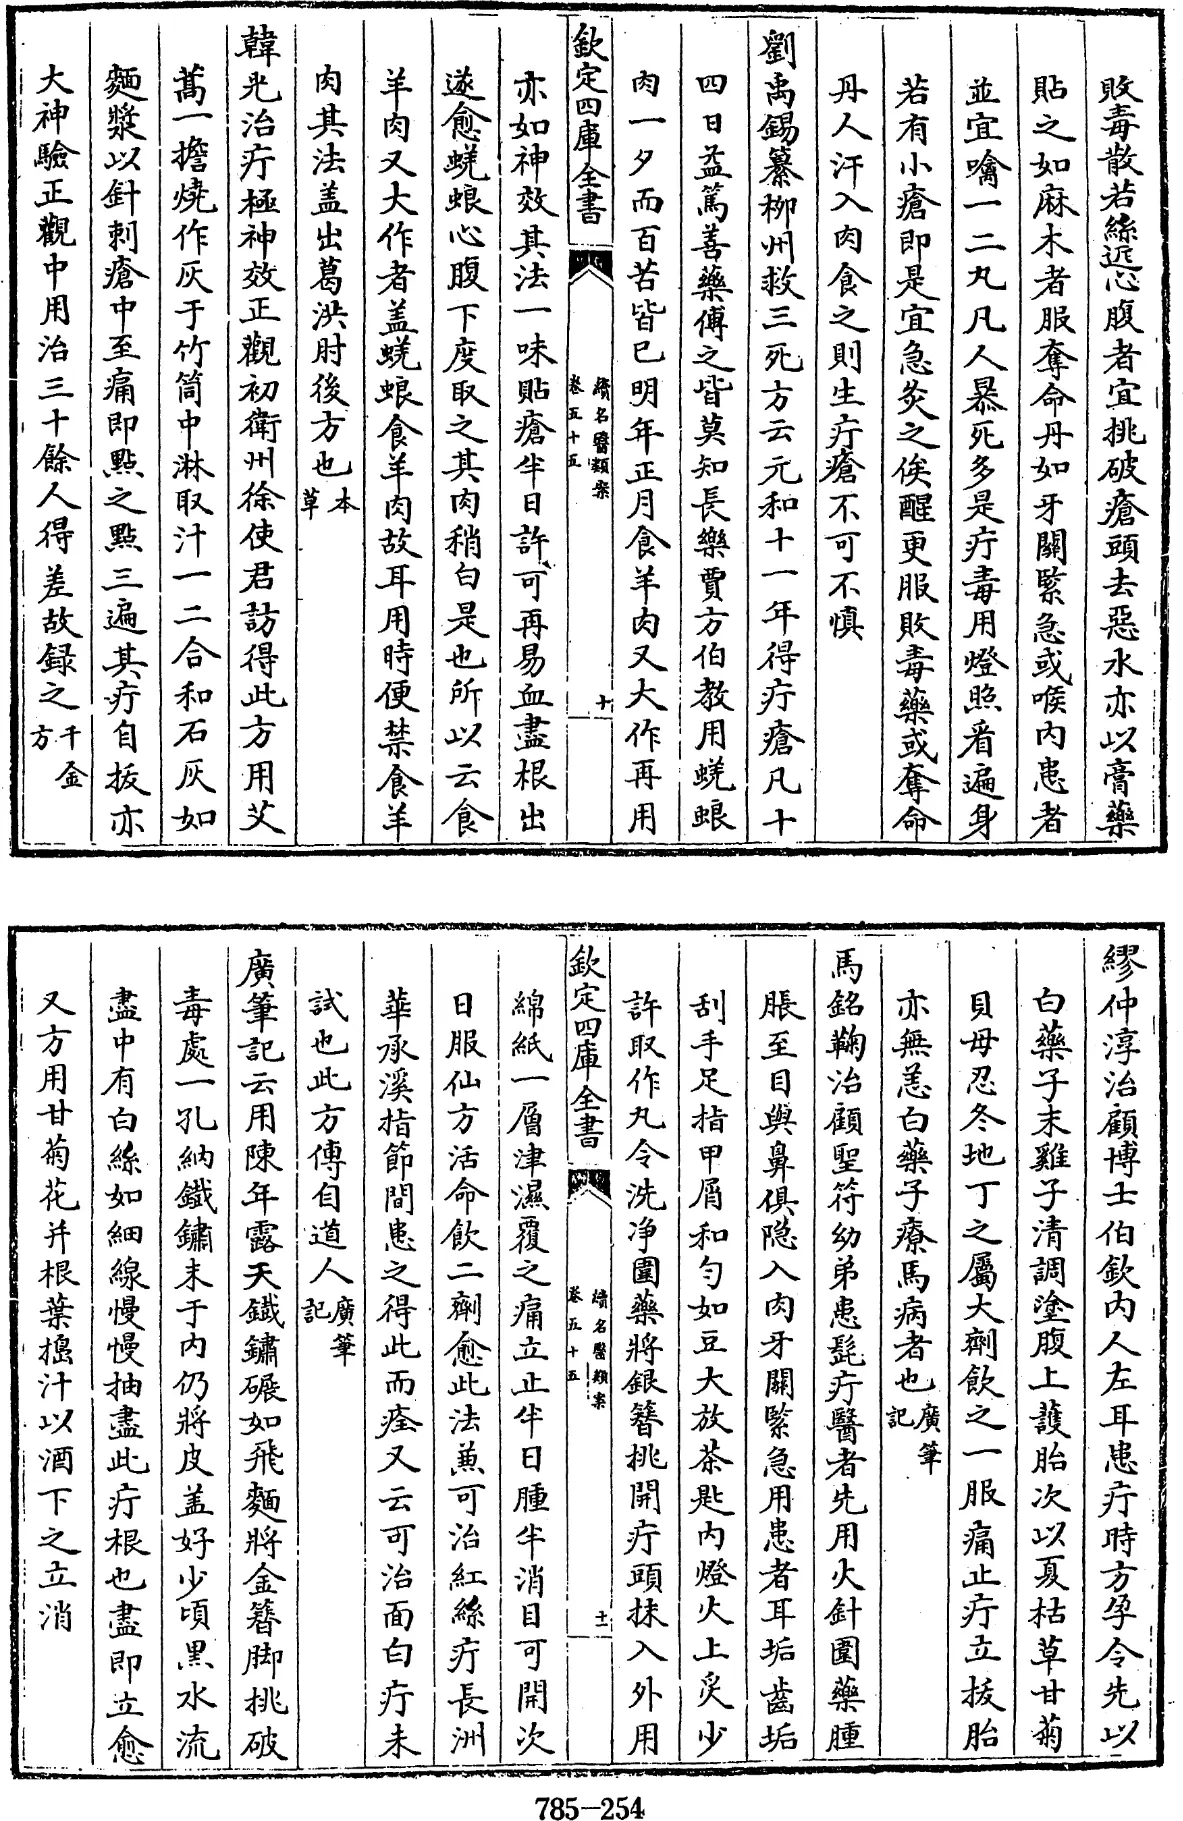 敗毒散若絲近心腹者宜挑破瘡頭去惡水亦以膏藥
貼之如麻木者服奪命丹如牙關緊急或喉內患者
並宜噙一二丸凡人暴死多是疔毒用燈照看遍身
若有小瘡即是宜急灸之俟醒更服敗毒藥或奪命
丹人汗入肉食之則生疔瘡不可不慎
劉禹錫纂柳州救三死方云元和十一年得疔瘡凡十
四日益篤善藥傅之皆莫知長樂賈方伯教用蜣蜋
肉一夕而百苦皆已明年正月食羊肉又大作再用
欽定四庫全書
續名醫類案
卷五十五
十
亦如神效其法一味貼瘡半日許可再易血盡根出
遂愈蜣蜋心腹下度取之其肉稍白是也所以云食
羊肉又大作者盖蜣蜋食羊肉故耳用時便禁食羊
肉其法盖出葛洪肘後方也本草
韓光治疔極神效正觀初衛州徐使君訪得此方用艾
蒿一擔燒作灰于竹筒中淋取汁一二合和石灰如
麵漿以針刺瘡中至痛即點之點三遍其疔自拔亦
大神驗正觀中用治三十餘人得差故録之千金方
繆仲淳治顧博士伯欽內人左耳患疔時方孕令先以
白藥子末雞子清調塗腹上護胎次以夏枯草甘菊
貝母忍冬地丁之屬大劑飲之一服痛止疔立拔胎
亦無恙白藥子療馬病者也廣筆記
馬銘鞠治顧聖符幼弟患髭疔醫者先用火針圍藥腫
脹至目與鼻俱隐入肉牙關緊急用患者耳垢齒垢
刮手足指甲屑和勻如豆大放茶匙內燈火上炙少
許取作丸令洗净圍藥將銀簪挑開疔頭抹入外用
欽定四庫全書
續名醫類案
卷五十五
十一
綿紙一層津濕覆之痛立止半日腫半消目可開次
日服仙方活命飲二劑愈此法兼可治紅絲疔長洲
華承溪指節間患之得此而痊又云可治面白疔未
試也此方傳自道人廣筆記
廣筆記云用陳年露天鐵鏽碾如飛麵將金簪脚挑破
毒處一孔納鐵鏽末于內仍將皮盖好少頃黑水流
盡中有白絲如細線慢慢抽盡此疔根也盡即立愈
又方用甘菊花并根葉搗汁以酒下之立消
785-254